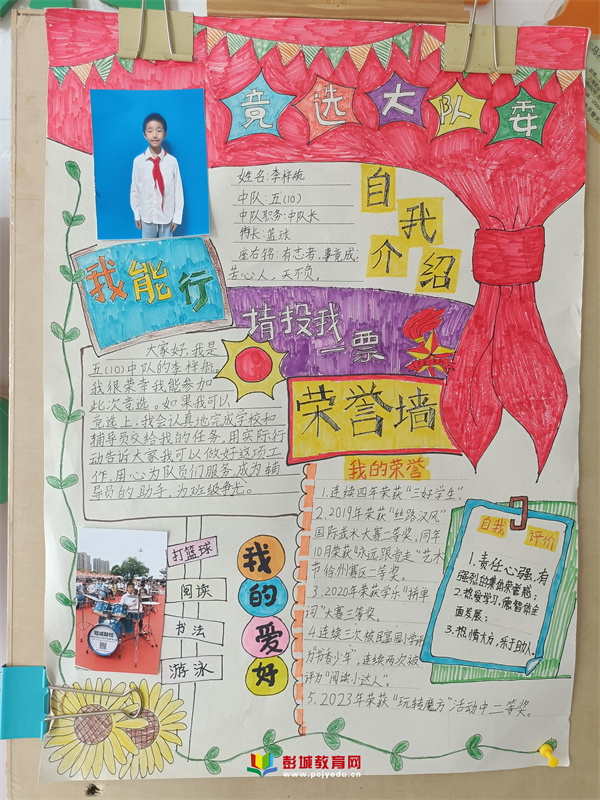 竞选大队委
姓名:李梓航
中队:五(10)
中队职务:中队长
特长:篮球
座右铭:有志者,事竟成;
苦心人,天不负。
自我介绍
我能行
请投我一票
大家好,我是
五(10)中队的李梓航。
我很荣幸我能参加
此次竞选。如果我可以
竞选上,我会认真地完成学校和
辅导员交给我的任务,用实际行
动告诉大家我可以做好这项工
作,用心为队员们服务,成为辅
导员的助手,为班级争光。
荣誉墙
我的荣誉
1.连续四年荣获“三好学生”。
2.2019年荣获“丝路汉风”
国际武术大赛二等奖,同年
10月荣获“永远跟党走”艺术
节徐州赛区二等奖。
3.2020年荣获学乐“拼单
词”大赛三等奖。
4.连续三次被民富园小学评
为“书香少年”,连续两次被
评为“阅读小达人”。
5.2023年荣获“玩转魔方”活动中二等奖。
自我评价
1.责任心强,有
强烈的集体荣誉感;
2.热爱学习,德智体全
面发展;
3.热情大方,乐于助人。
我的爱好
打篮球
阅读
书法
游泳
彭城教育网
www.pcjyedu.cn